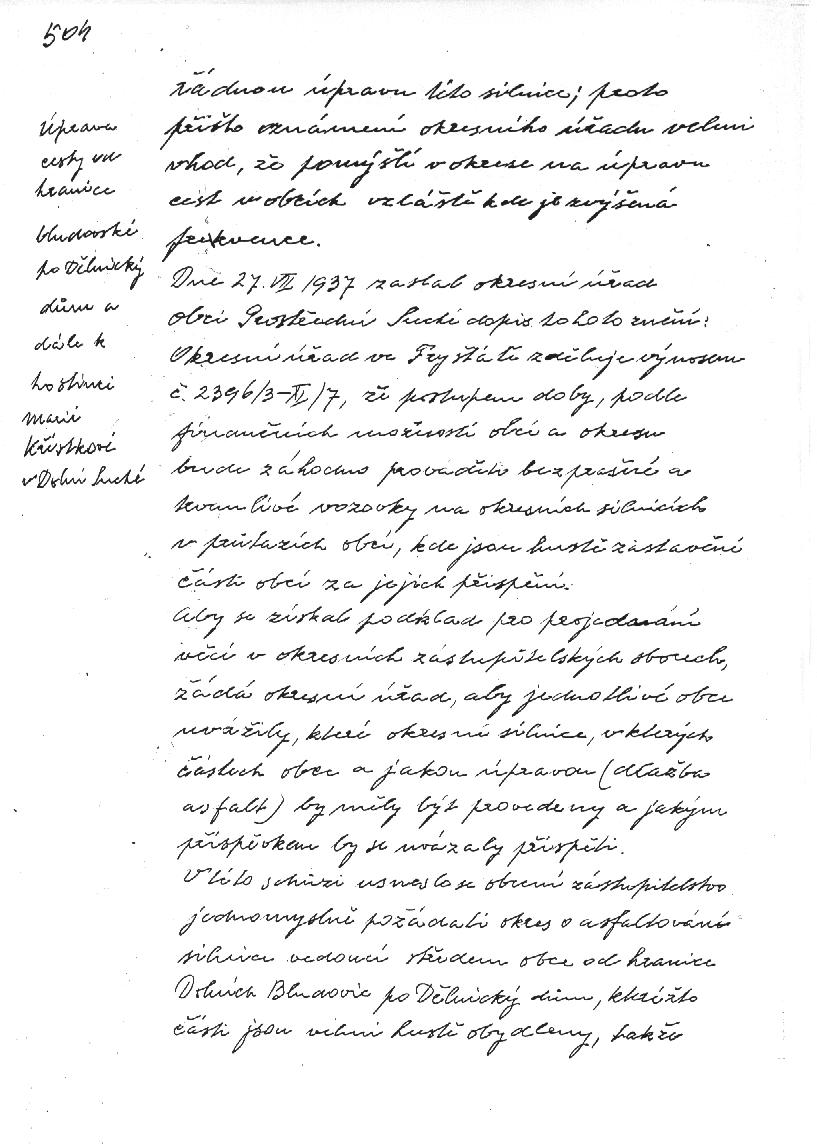 504
Úprava
cesty od
hranice
bludovské
po Dělnický
dům a
dále k
hostinci
Marie
Křístkové
v Dolní Suché
řádnou úpravu této silnice; proto
přišlo oznámení okresního úřadu velmi
vhod, že pomýšlí v okrese na úpravu
cest v obcích vzláště kde je zvýšená
frekvence.
Dne 27. VII 1937 zaslal okresní úřad
obci Prostřední Suché dopis tohoto znění:
Okresní úřad ve Fryštátě zděluje výnosem
č. 2396/3-XI/7, že postupem doby, podle
finančních možností obcí a okresu
bude záhodno prováděti bezprašné a
trvanlivé vozovky na okresních silnicích
v průtazích obcí, kde jsou hustě zastavěné
části obcí za jejich přispění.
Aby se získal podklad pro projednání
věci v okresních zástupitelských sborech,
žádá okresní úřad, aby jednotlivé obce
uvážily, které okresní silnice, v kterých
částech obce a jakou úpravou (dlažba
asfalt) by měly být provedeny a jakým
příspěvkem by se uvázaly přispěti.
V této schůzi usneslo se obecní zástupitelstvo
jednomyslně požádati okres o asfaltování
silnice vedoucí středem obce od hranice
Dolních Bludovic po Dělnický dům, kteréžto
části jsou velmi hustě obydleny, takže